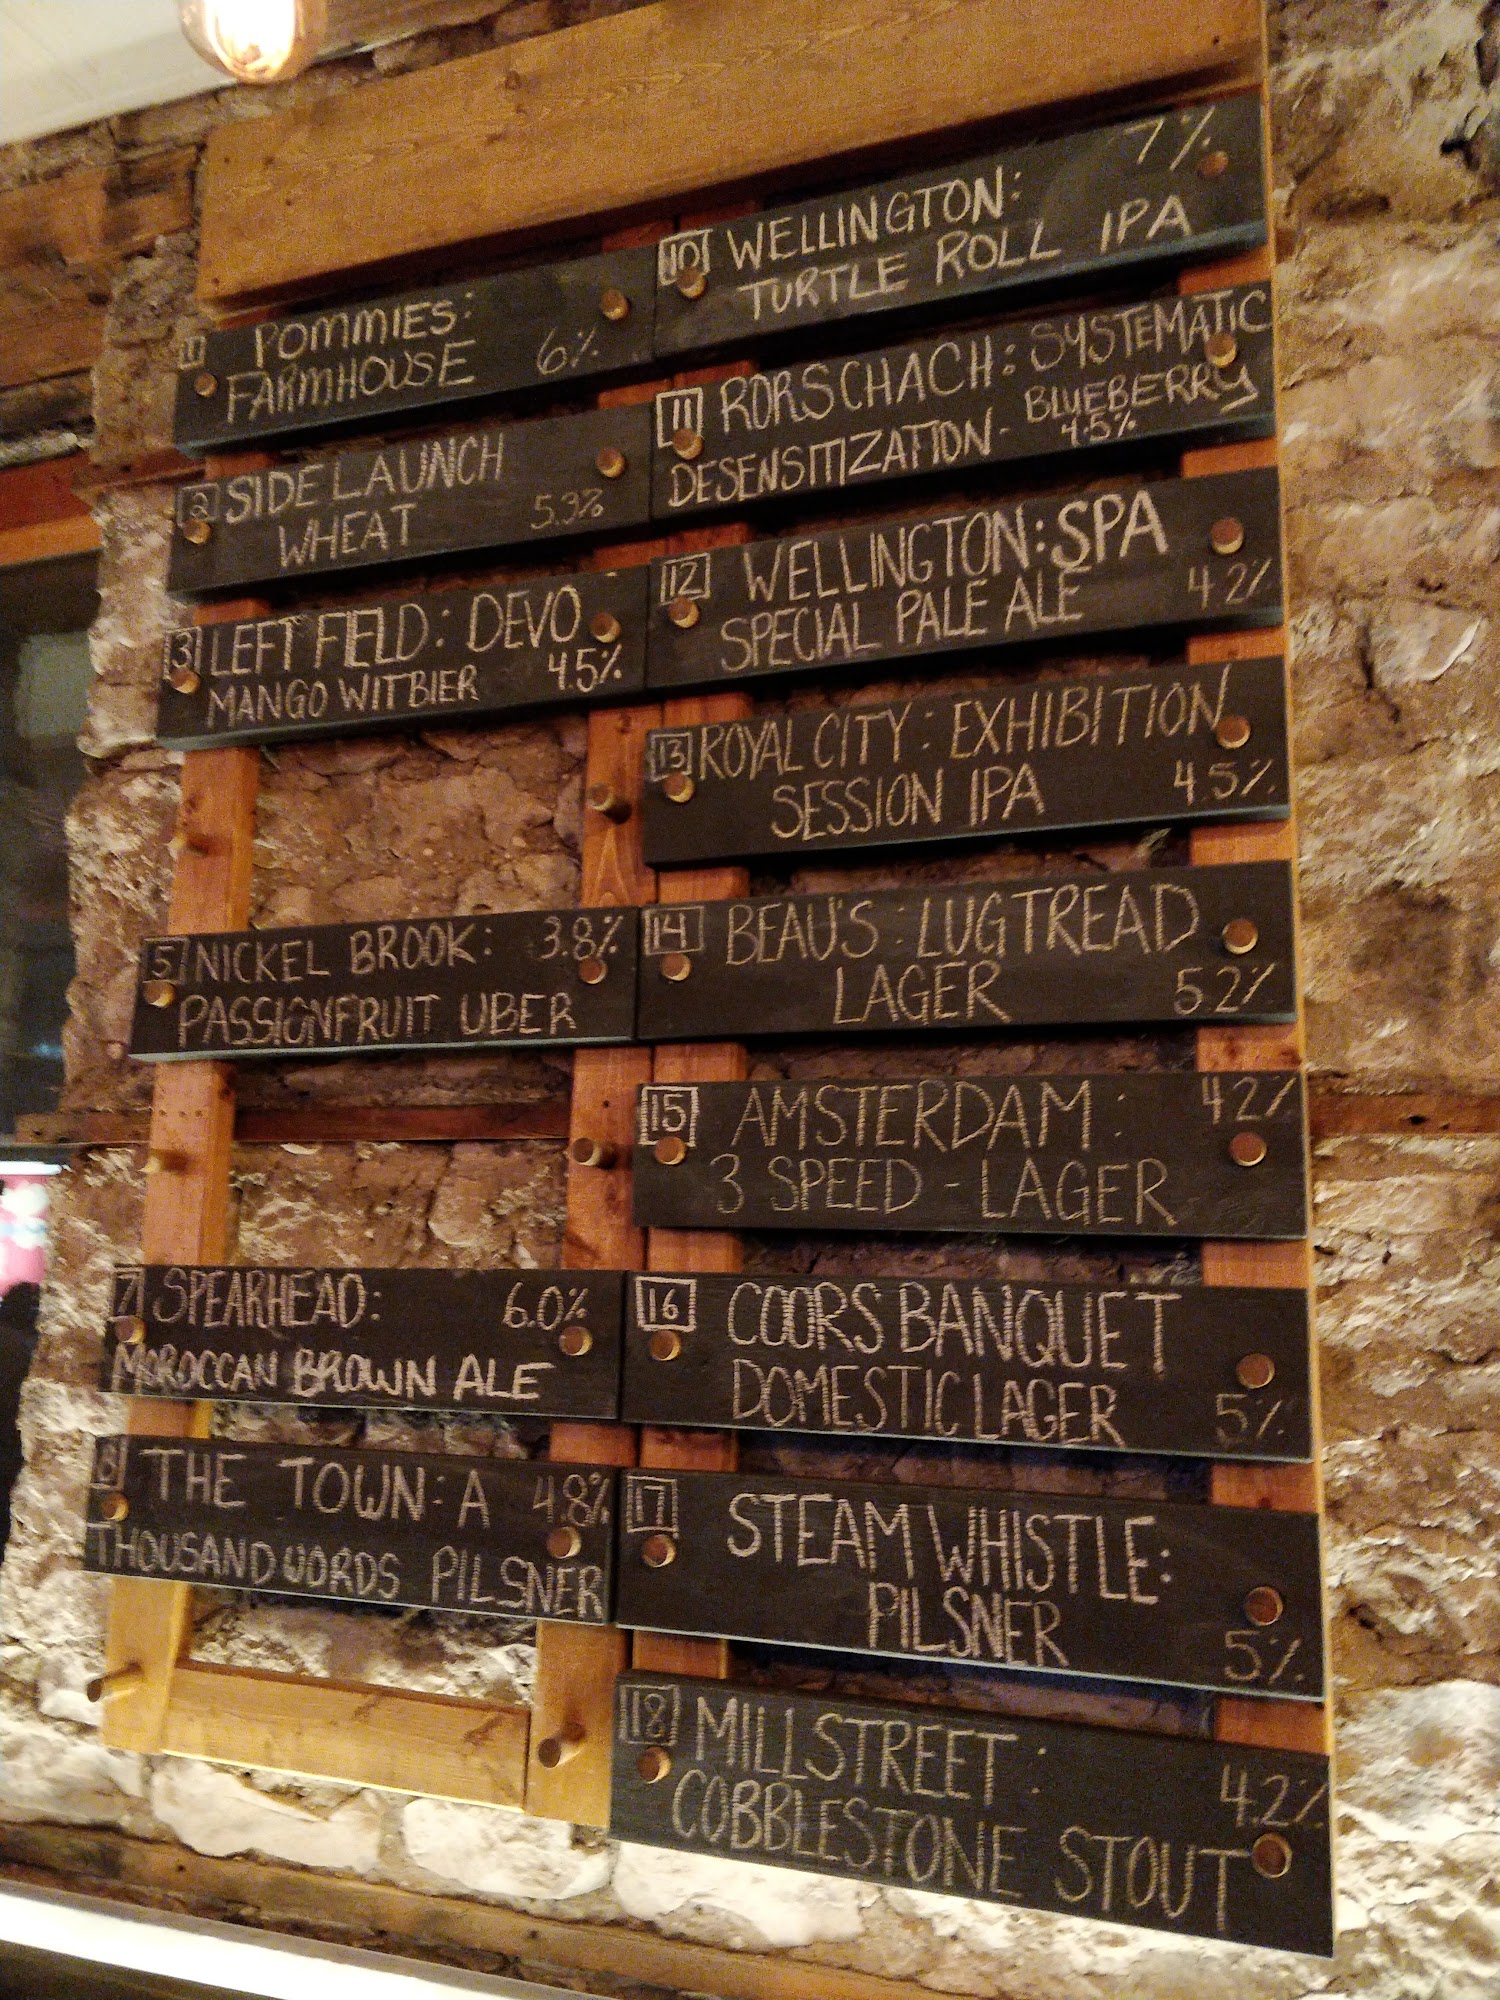 1 POMMIES:
FARMHOUSE 6%
2 SIDE LAUNCH
WHEAT 5.3%
3 LEFT FIELD: DEVO
MANGO WITBIER 4.5%
5 NICKEL BROOK: 3.8%
PASSIONFRUIT UBER
7 SPEARHEAD: 6.0%
MOROCCAN BROWN ALE
8 THE TOWN: A 4.8%
THOUSAND WORDS PILSNER
7%
10 WELLINGTON:
TURTLE ROLL IPA
11 RORSCHACH: SYSTEMATIC
DESENSITIZATION - BLUEBERRY
4.5%
12 WELLINGTON: SPA
SPECIAL PALE ALE 4.2%
13 ROYAL CITY: EXHIBITION
SESSION IPA 4.5%
14 BEAU'S: LUGTREAD
LAGER 5.2%
15 AMSTERDAM: 4.2%
3 SPEED - LAGER
16 COORS BANQUET
DOMESTIC LAGER 5%
17 STEAM WHISTLE:
PILSNER 5%
18 MILLSTREET: 4.2%
COBBLESTONE STOUT